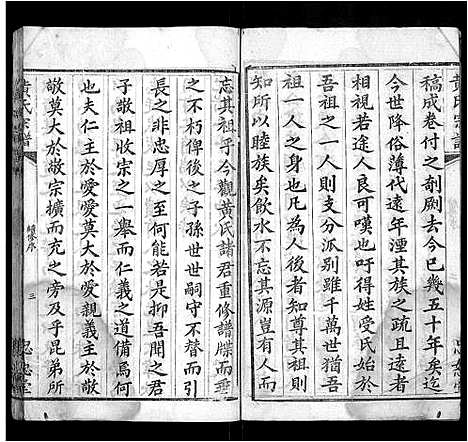 黃氏宗譜
稿成卷付之剞劂去今已幾五十年矣迄
今世降俗薄代遠年湮其族之疏且遠者
若途人良可嘆也吁得姓受氏始於
吾祖之一人則支分派別雖千萬世猶吾
祖一人之身也為人後者知尊其祖則
知所以睦族矣飲水不忘其源豈有人而
忘其祖乎今觀黃氏諸君重修譜牒而垂
之不朽俾後之子孫世世嗣守不替有引
長之非忠厚之至何能若是抑吾聞之君
子敬祖收宗之一舉而仁義之道備焉何
也夫仁主於愛愛莫大於愛親義主於敬
敬莫大於敬宗擴而充之旁及乎昆弟所
黃氏譜
序
三